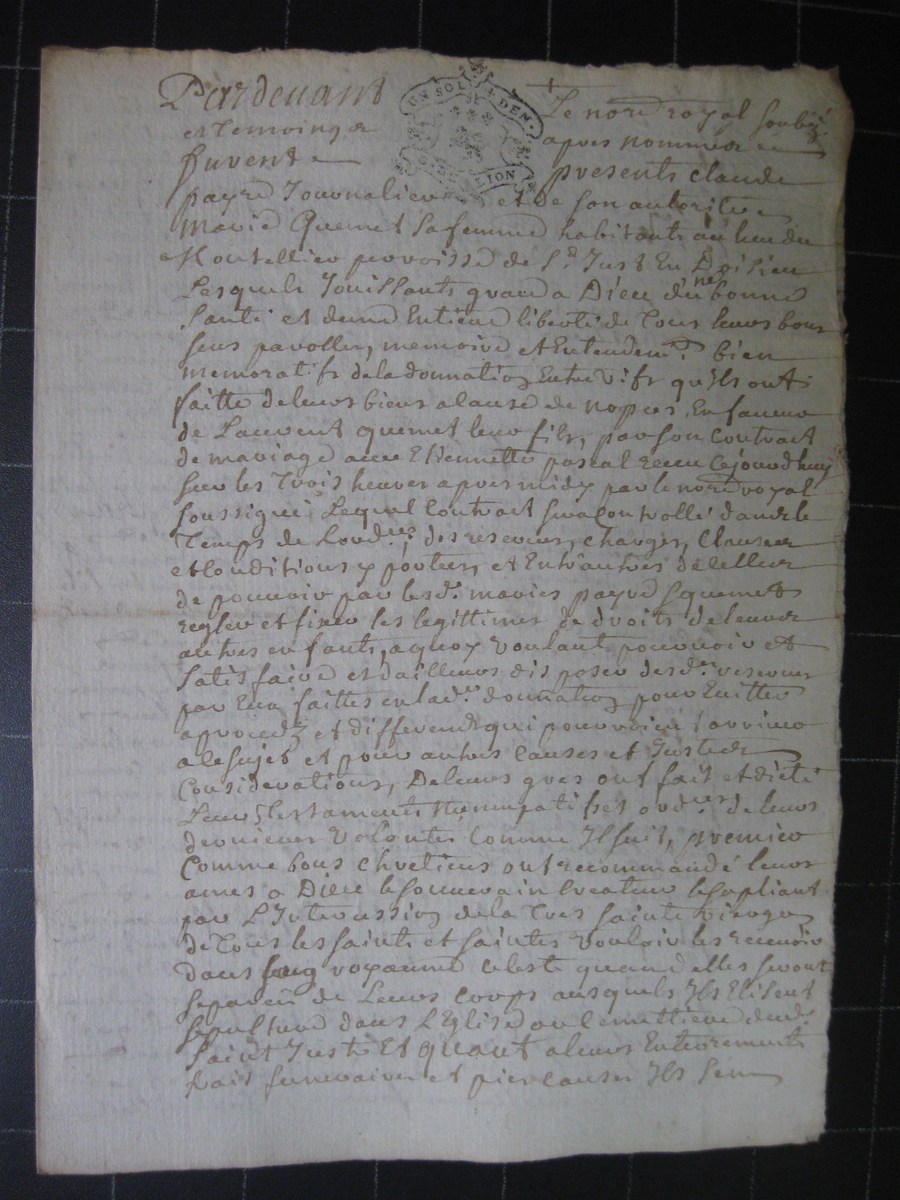 Pardevant
UN SOL LE DEN.
LION
Le nore royal soubzé
et Temoings
apres nommés
furent
presents claude
payre Journalier et de son autorité
Marie Quemet sa femme habitants au lieu du
Montellier parroisse de St Just En Doisieu
Lesquels Jouissants grace a Dieu d'une bonne
santé et d'une Entiere liberté de Tous leurs bons
sens parolles, memoire et Entendemt. bien
memoratifs de la donnation Entre Vifs qu'ils ont
faitte de leurs biens a cause de nopces En faveur
de Laurent quemet leur fils, par son contract
de mariage avec Etiennette pascal receu cejourdhuy
sur les Trois heures apres midy par le nore royal
soussigné, Lequel Contract sera Controllé dans le
Temps de Lordce. des reserves, charges, Clauses
et Conditions y portées, et Entr'autres de celles
de pouvoir par lesds. mariés payre et quemet
regler et fixer les legittimes de droits de leurs
autres enfants, a quoy voulants pourvoir et
satisfaire et d'ailleurs disposer desds. reserves
par Eux faittes en lade. donnation pour Euitter
aproces et differends qui pourroient arriver
a ce sujet et pour autres causes et Justes
Considerations, De leurs grés ont fait et dicté
Leurs Testaments Nuncupatifs et ordces. de leurs
dernieres Volontés Comme Il suit, premier
Comme bons chretiens ont recommandé leurs
ames a Dieu le souverain Createur le supliant
par L'Intercession de la Tres sainte Vierge
de Tous les saints et saintes vouloir les recevoir
dans son royaume celeste quand elles seront
separées de Leurs corps ausquels Ils Elisent
sepulture dans L'Eglise ou cemettiere dud.
saint Just Et quant a leurs Enterrements
frais funeraires et pies causes Ils sen